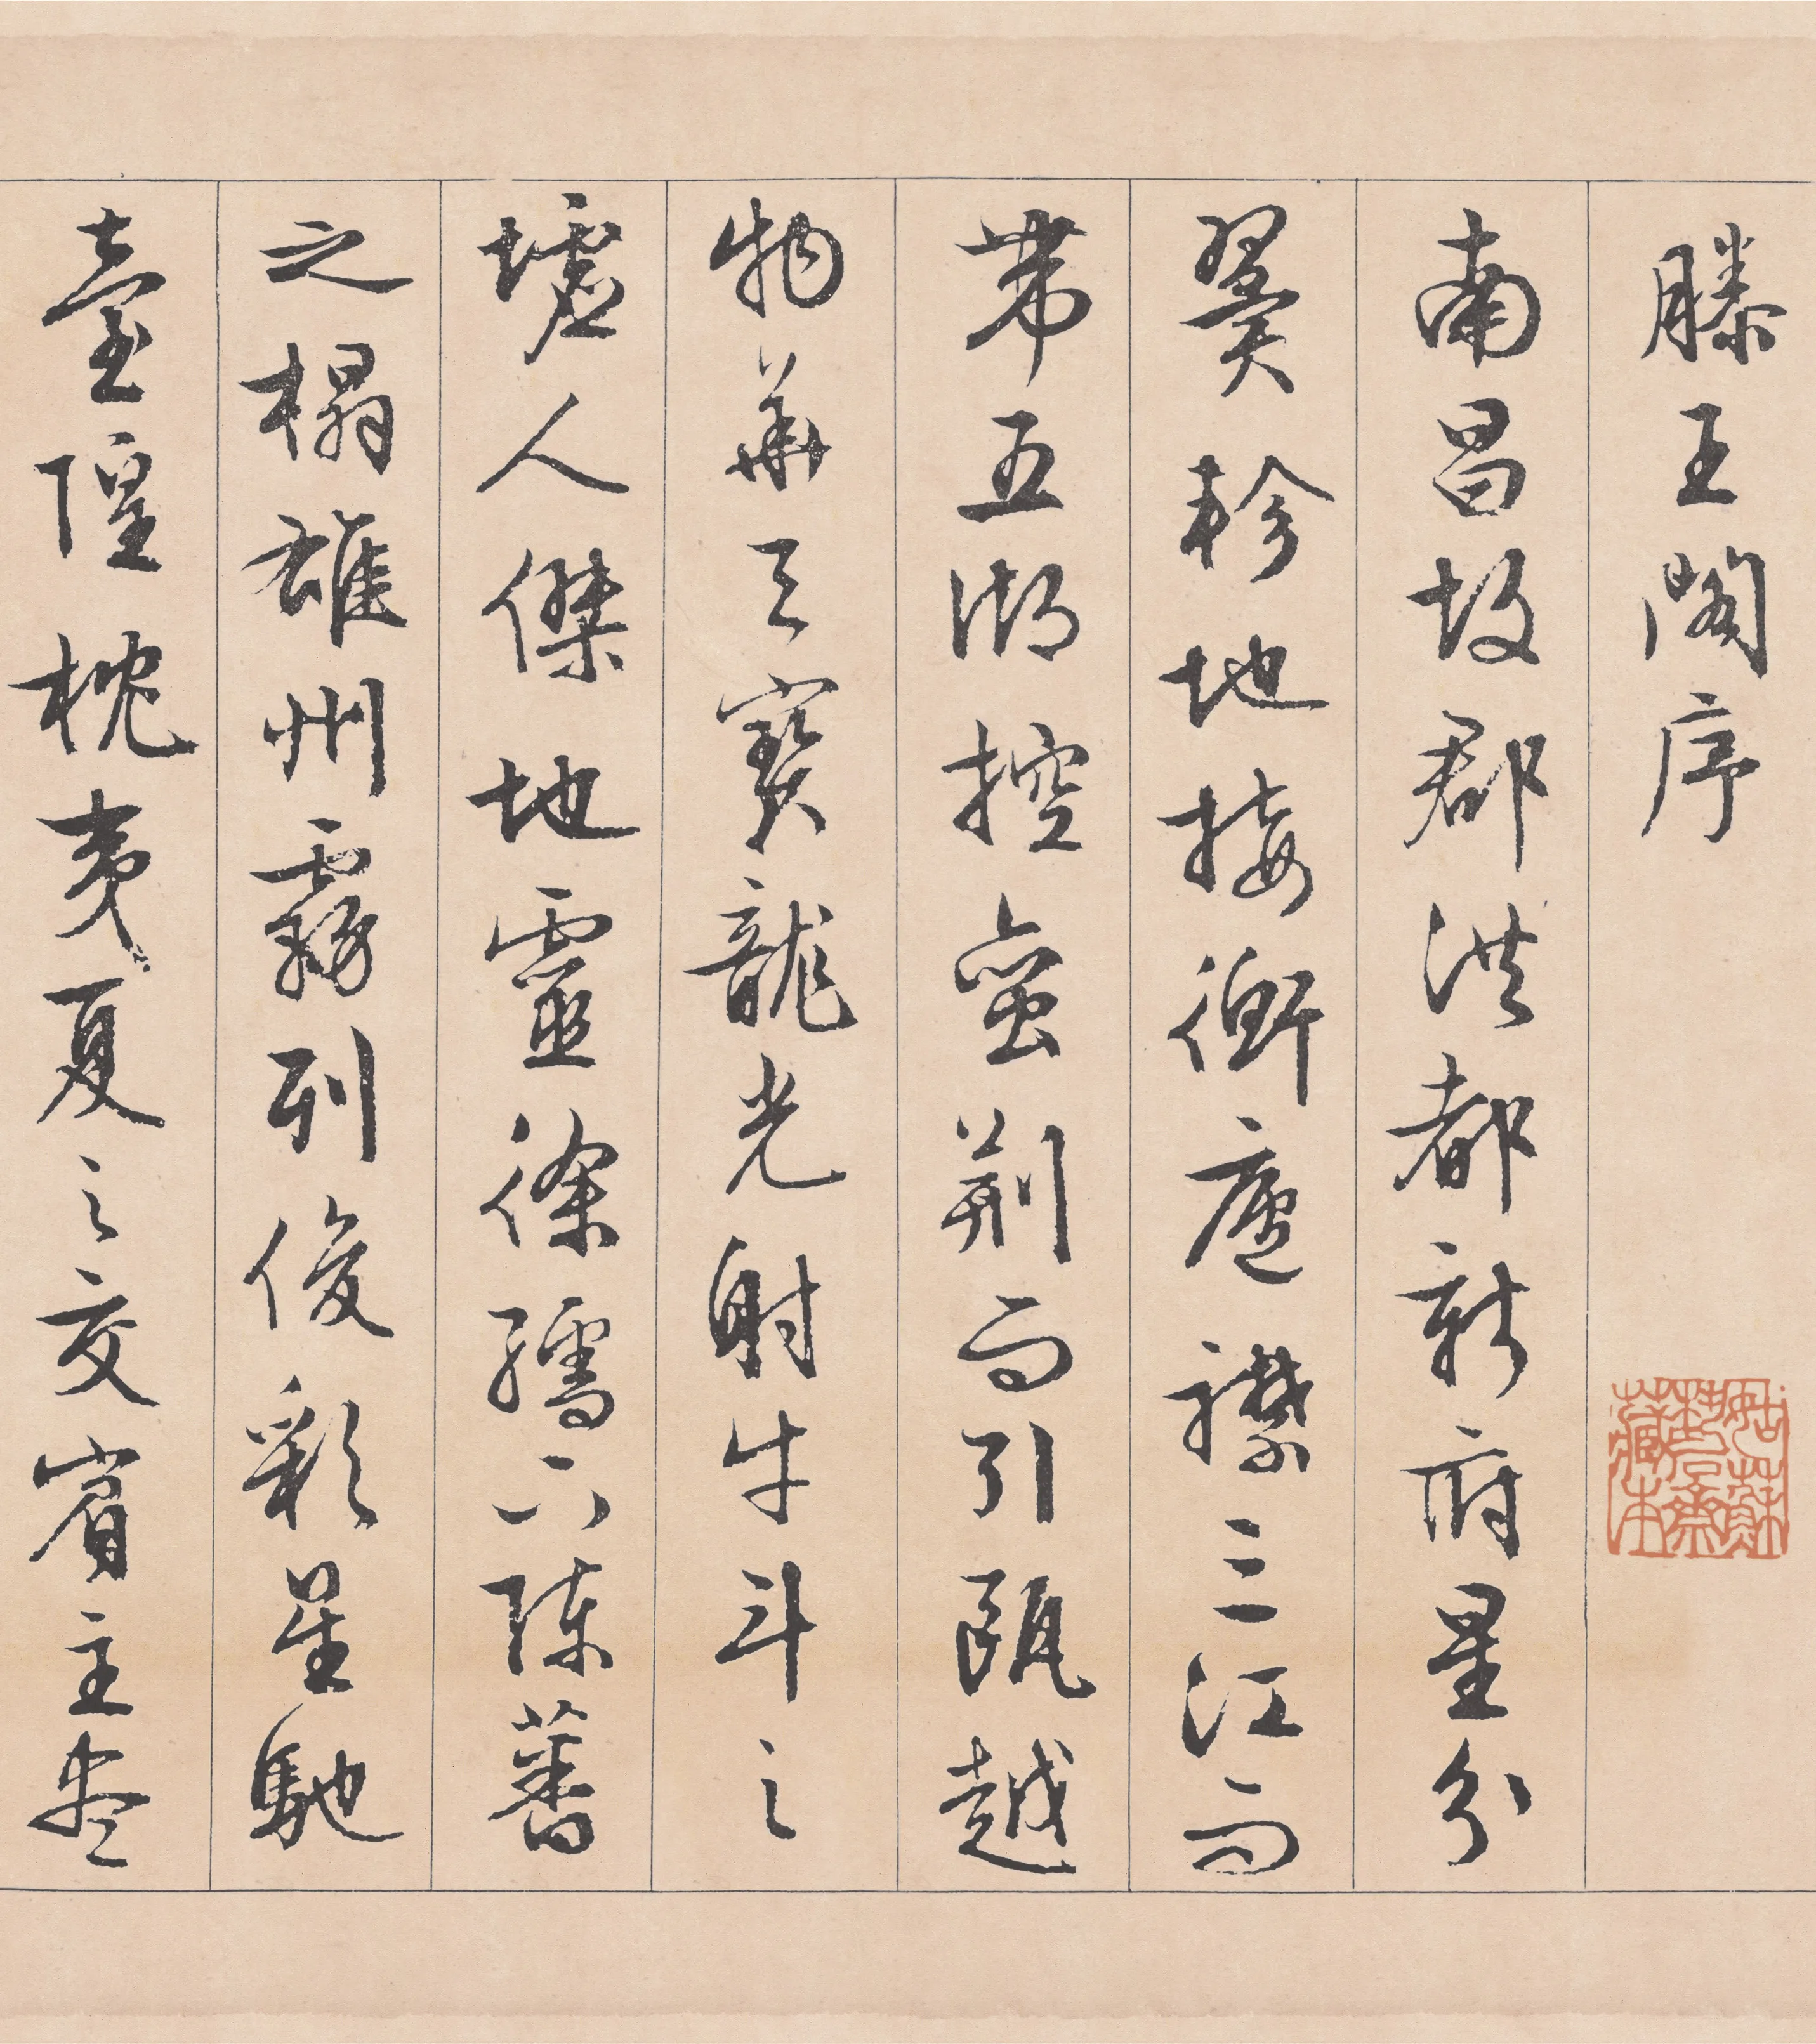 滕王閣序
姑蘇
齋
藏本
南昌故郡洪都新府星分
翼軫地接衡廬襟三江而
帶五湖控蛮荊而引甌越
物華天寶龍光射牛斗之
墟人傑地靈徐孺下陳蕃
之榻雄州霧列俊彩星馳
臺隍枕夷夏之交賓主盡